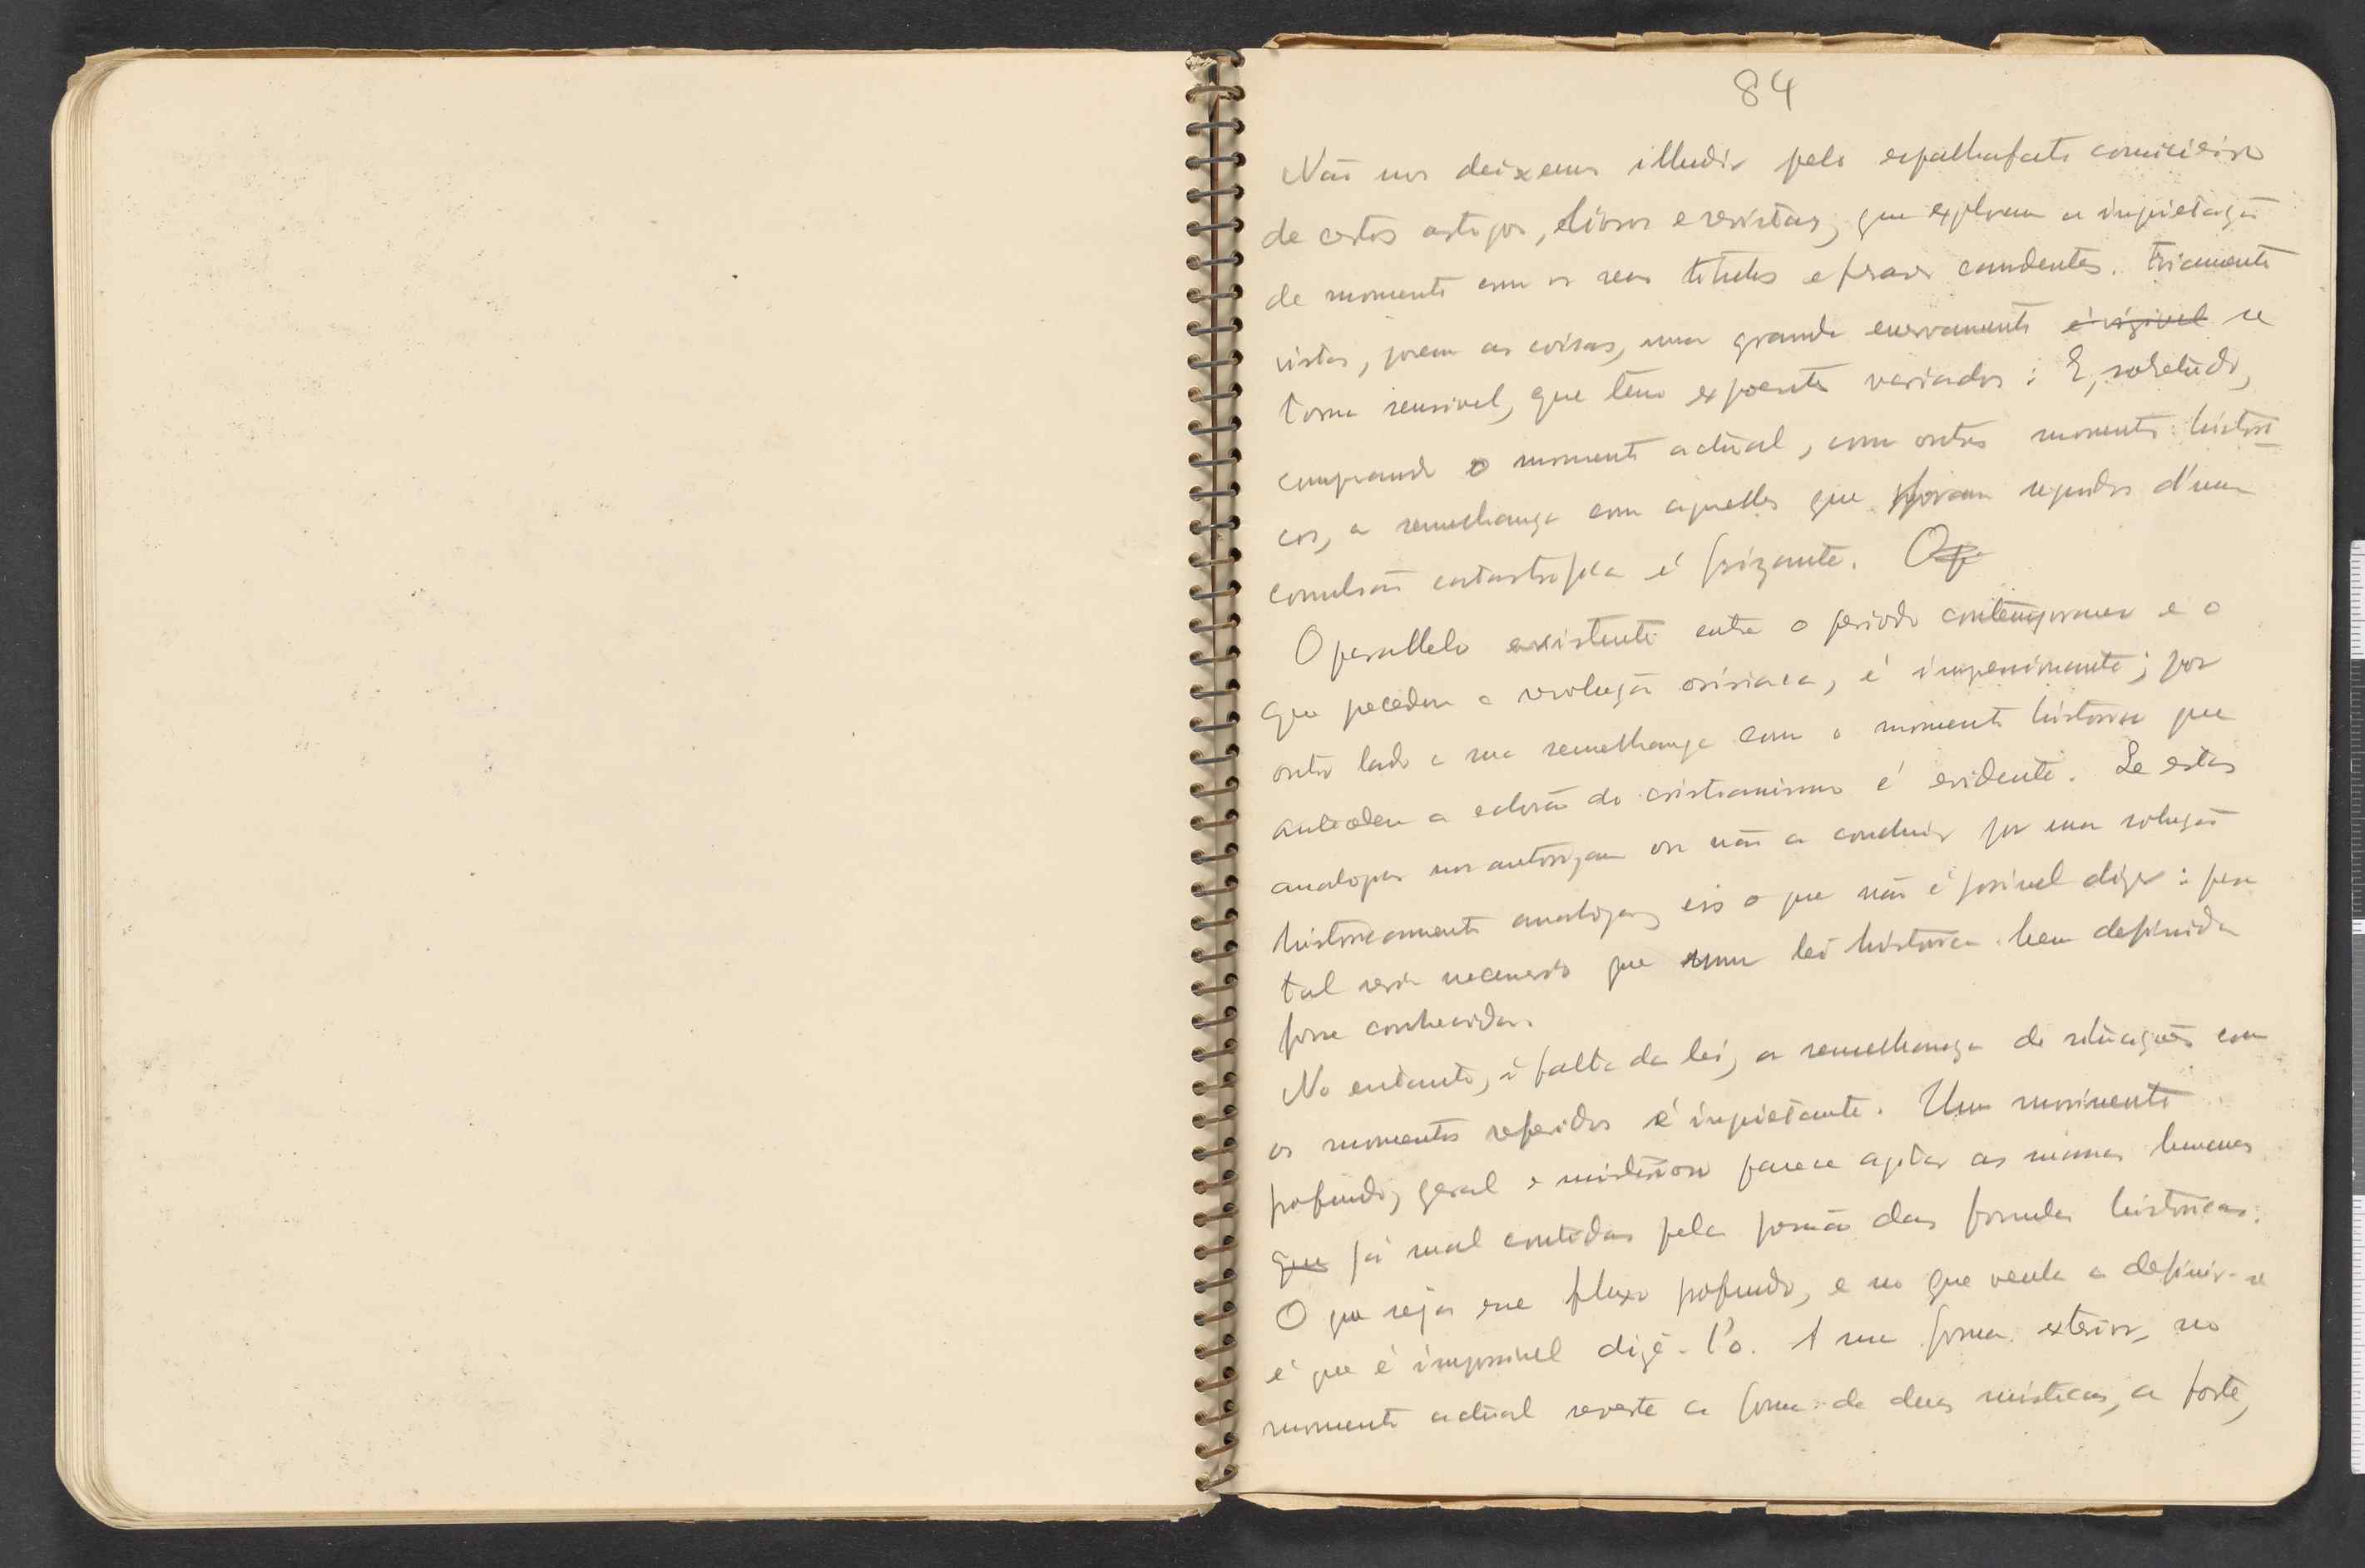 84
Não nos deixemos illudir pelo espalhafato comicieiro
de certos artigos, livros e revistas, que exploram a inquietação
de momento com os seus titulos e frases candentes. Friamente
vistas, porem as coisas, um grande enervamento é visivel se
torna sensivel, que tem expoentes variados: E, sobretudo,
comparando o momento actual, com outros momentos histori-
cos, a semelhança com aquelles que foram seguidos d'uma
convulsão catastrofica é frizante. O
O parallelo existente entre o periodo contemporaneo e o
que precedeu a revolução osiriaca, é impressionante; por
outro lado a sua semelhança com o momento historico que
antecedeu a eclosão do cristianismo é evidente. Se estas
analogias nos autorizam ou não a concluir por uma solução
historicamente analoga, eis o que não é possivel dizer: para
tal seria necessario que uma lei historica bem definida
fosse conhecida.
No entanto, á falta da lei, a semelhança de situações com
os momentos referidos é inquietante. Um movimento
profundo, geral e misterioso parece agitar as massas humanas
que já mal contidas pela pressão das formulas historicas.
O que seja esse fluxo profundo, e no que venha a definir-se
é que é impossivel dizê-l'o. A sua forma exterior, no
momento actual reveste a forma de duas misticas, a forte,